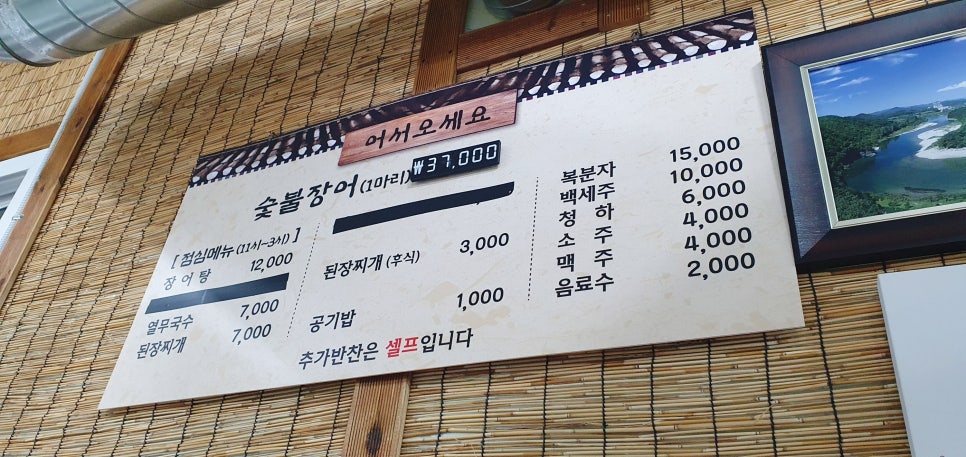 어서오세요
숯불장어(1마리) ₩37,000
[ 점심메뉴 (11시-3시) ]
장어탕 12,000
열무국수 7,000
된장찌개 7,000
된장찌개 (후식) 3,000
공기밥 1,000
복분자 15,000
백세주 10,000
청하 6,000
소주 4,000
맥주 4,000
음료수 2,000
추가반찬은 셀프입니다